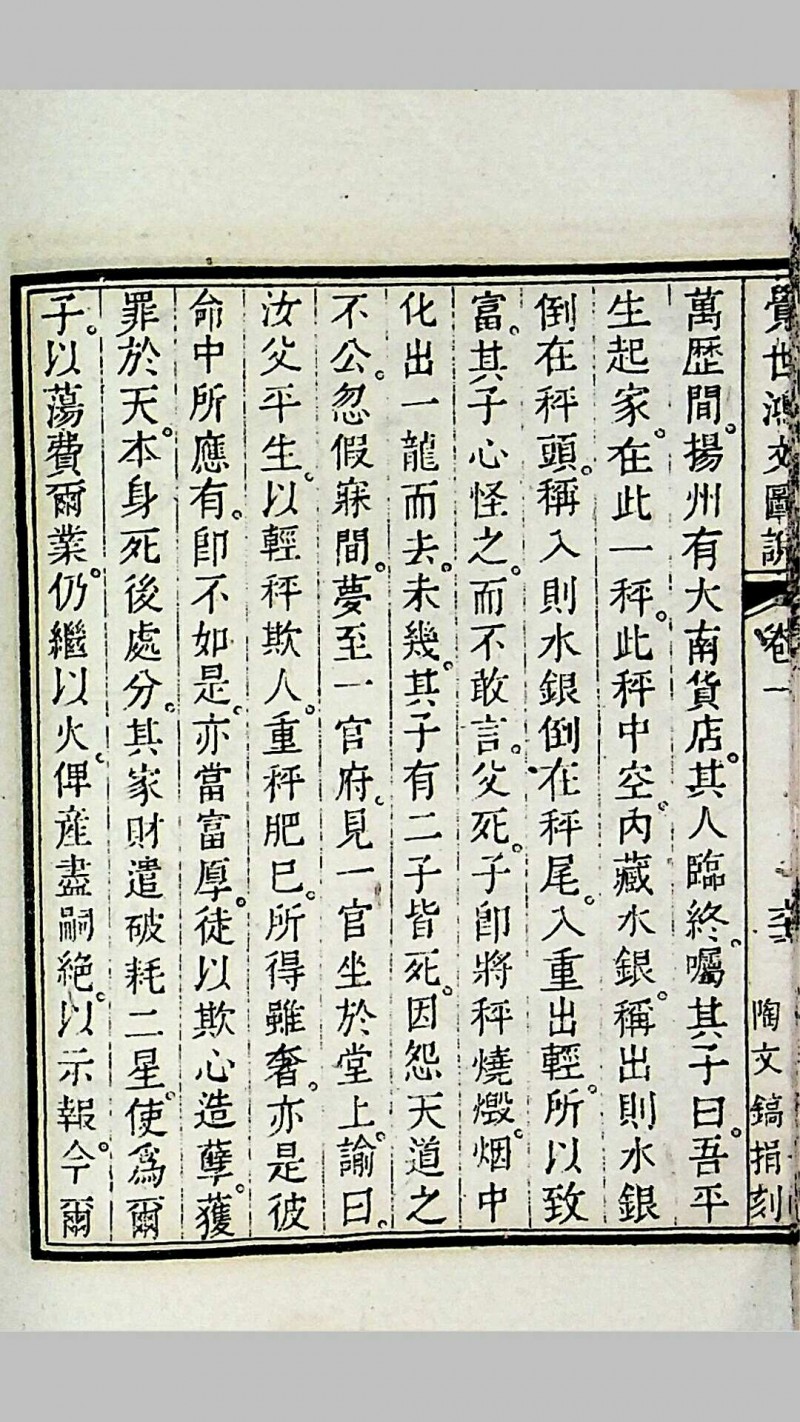 覺世鴻文圖說 卷一 陶文鎬捐刻
萬歷間。揚州有大南貨店。其人臨終。囑其子曰。吾平
生起家。在此一秤。此秤中空。內藏水銀。稱出則水銀
倒在秤頭。稱入則水銀倒在秤尾。入重出輕。所以致
富。其子心怪之。而不敢言。父死。子卽將秤燒燬。烟中
化出一龍而去。未幾。其子有二子皆死。因怨天道之
不公。忽假寐間。夢至一官府。見一官坐於堂上。諭曰。
汝父平生。以輕秤欺人。重秤肥已。所得雖奢。亦是彼
命中所應有。卽不如是。亦當富厚。徒以欺心造孽。獲
罪於天。本身死後處分。其家財遣破耗二星。使爲爾
子。以蕩費爾業。仍繼以火。俾産盡嗣絶。以示報。今爾